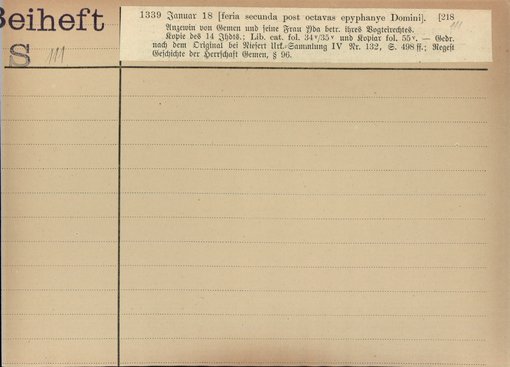 Beiheft
S 111
1339 Januar 18 [feria secunda post octavas epyphanye Domini]. [218
111
Anzewin von Gemen und seine Frau Yda betr. ihres Vogteirechtes.
Kopie des 14 Jhdts.; Lib. cat. fol. 34ᵛ/35ᵛ und Kopiar fol. 55ᵛ. — Gedr.
nach dem Original bei Niesert Urk.-Sammlung IV Nr. 132, S. 498 ff.; Regest
Geschichte der Herrschaft Gemen, § 96.